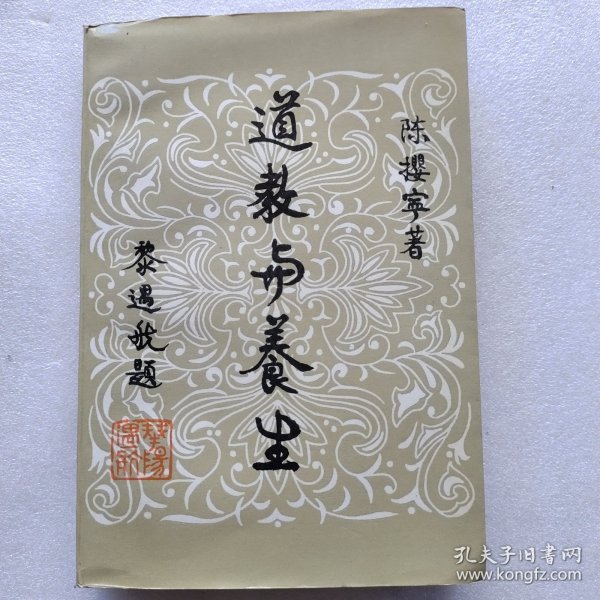 陈撄寧著
道教与養生
黎遇航題
孔夫子旧书网
www.kongfz.com